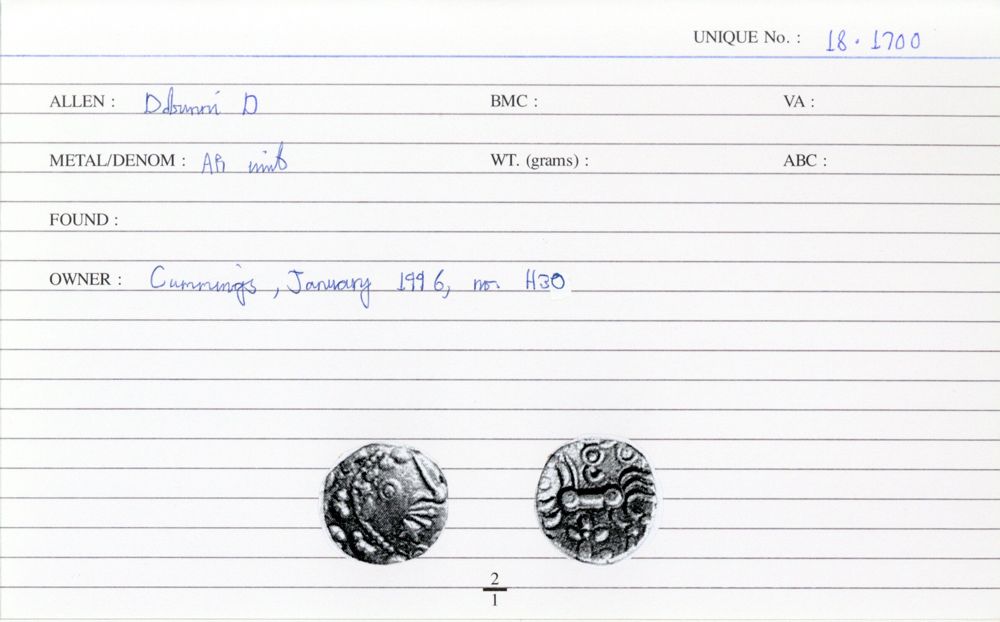 UNIQUE No. : 18.1700
ALLEN : Dobunni D BMC : VA :
METAL/DENOM : AR unit WT. (grams) : ABC :
FOUND :
OWNER : Cummings, January 1996, no. H30
2
1